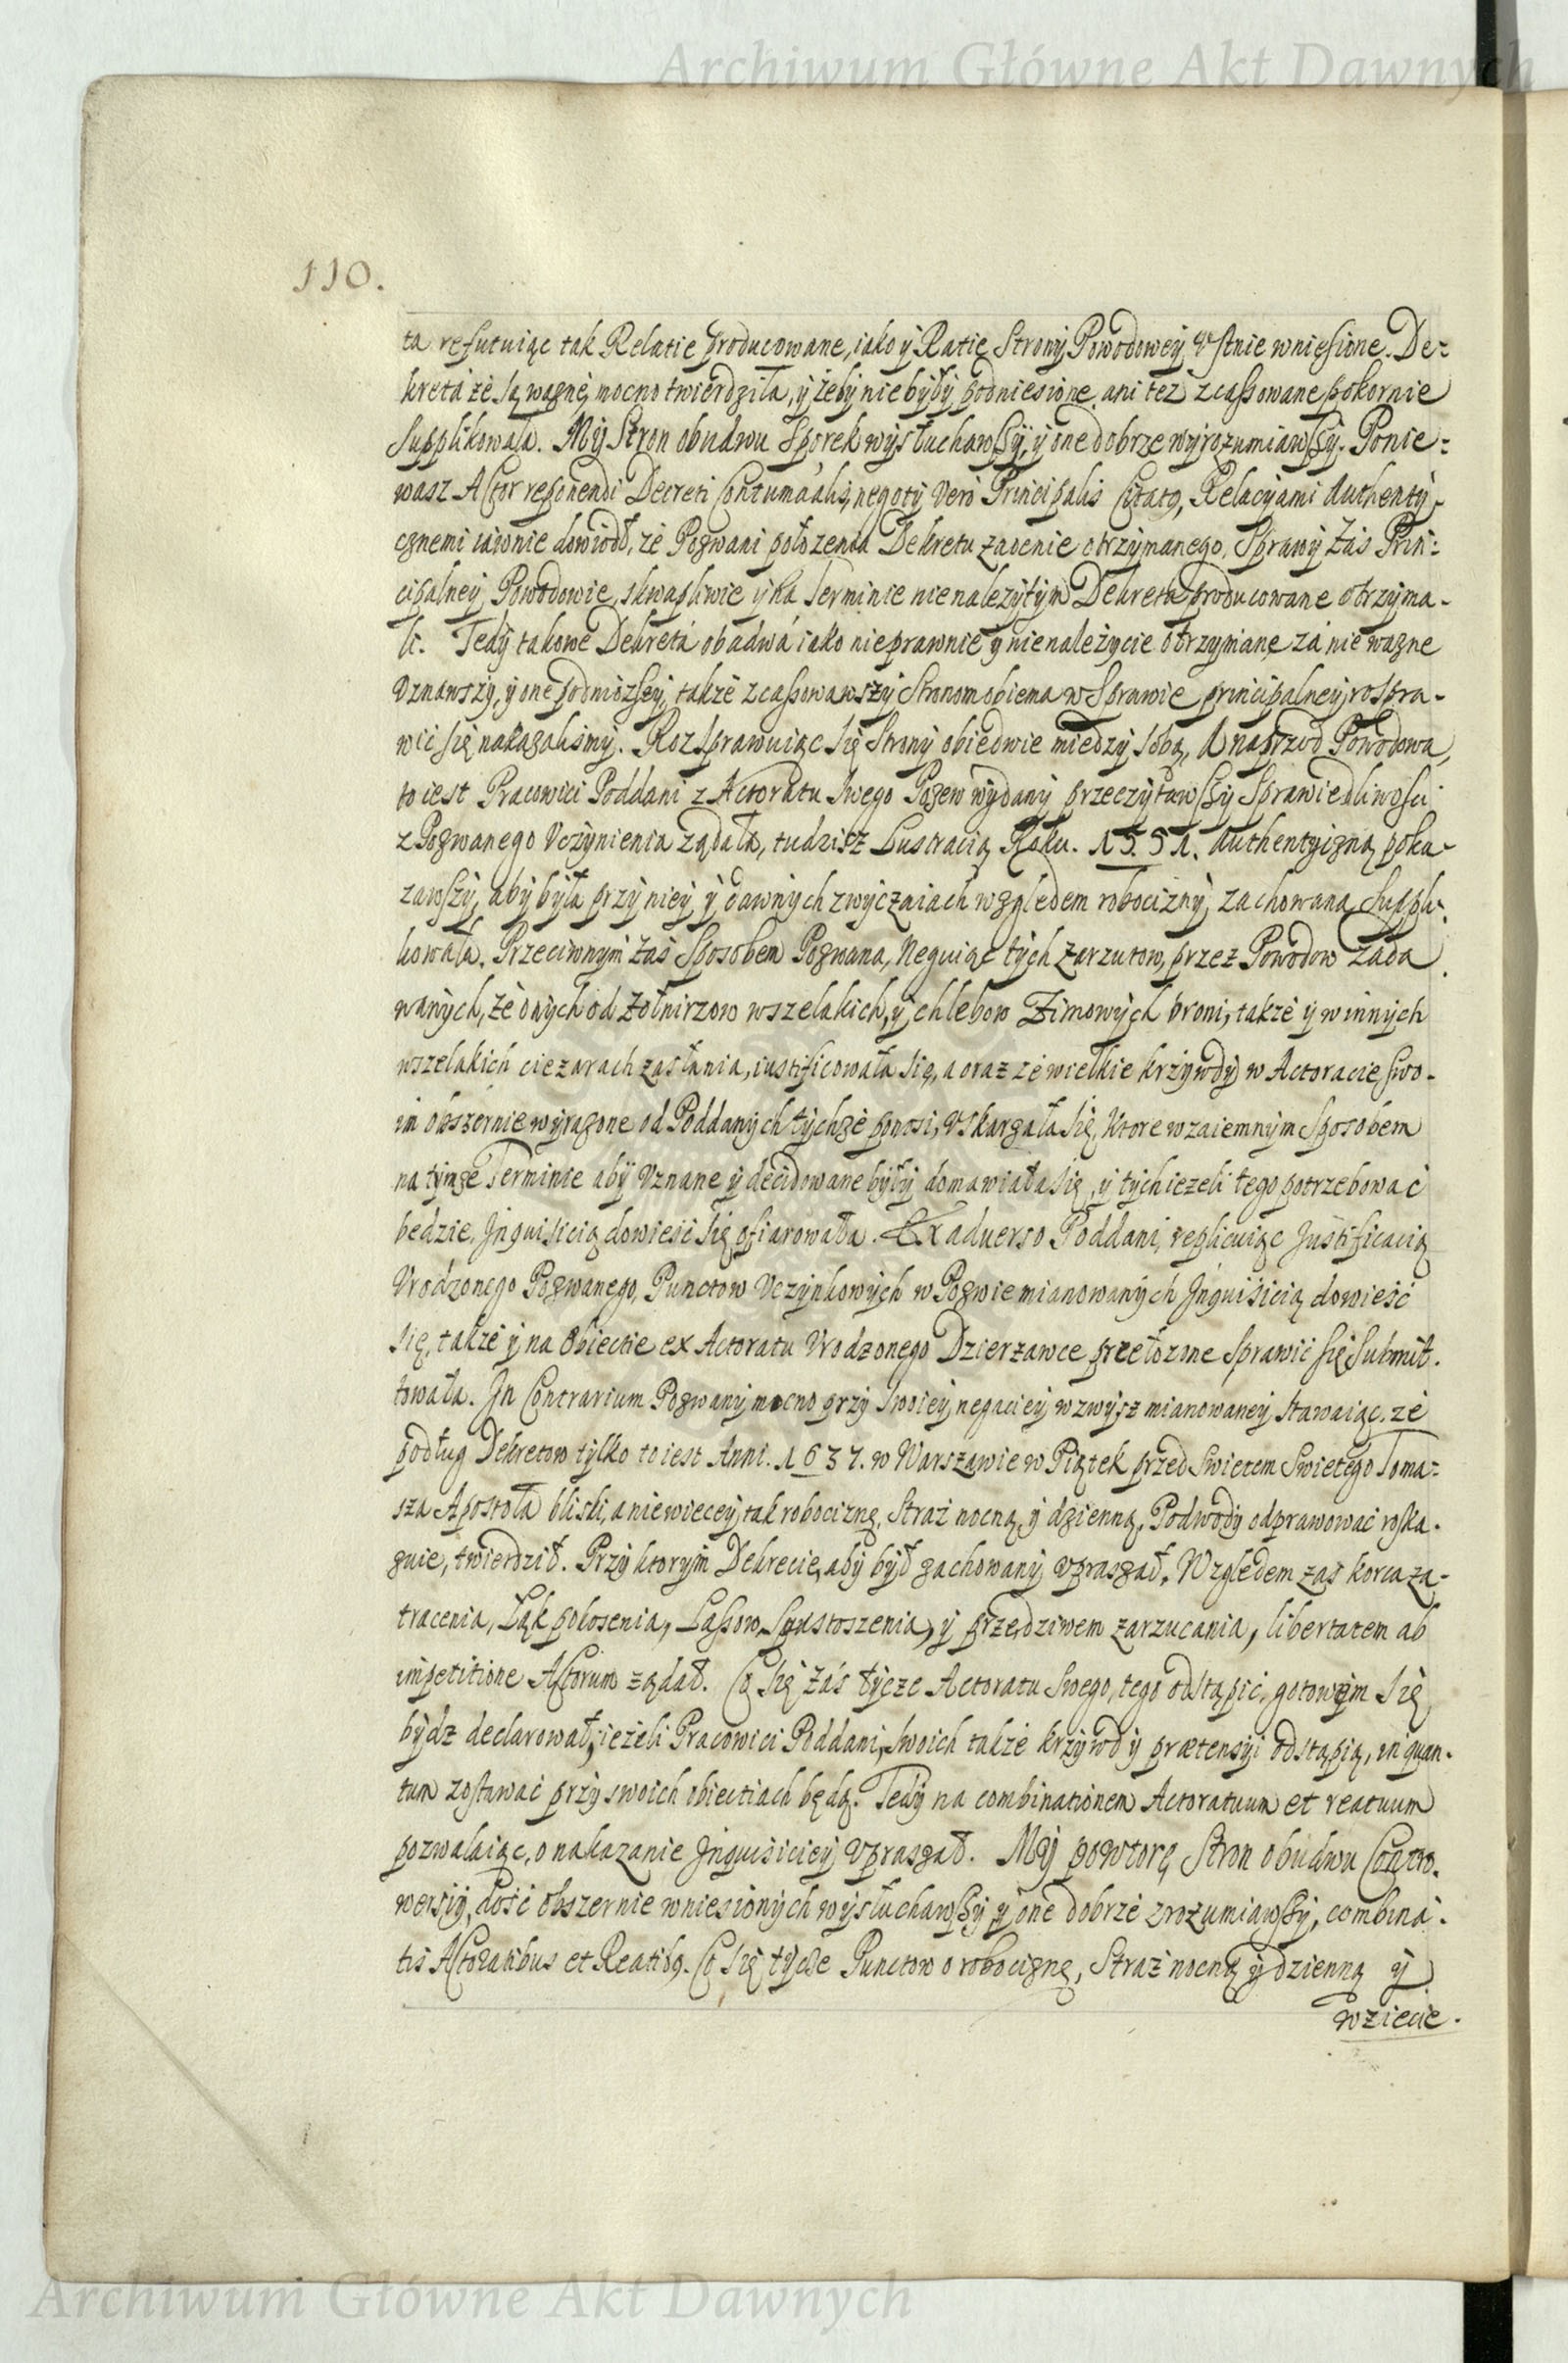 Archiwum Główne Akt Dawnych
110.
ta refutuiąc tak Relatie producowane, iako y Ratie Strony Powodowey Vstnie wniesione. De=
kretá że są wazne mocno twierdziła, y żeby nie były podniesione ani tez zcassowane pokornie
supplikowała. My Stron obudwu Sporek wysłuchawszy, y one dobrze wyrozumiawszy. Ponie=
wasz Actor reponendi Decreti Contumatialis, negoty Vero Principalis Citatq, Relacyami Authenty-
cznemi iawnie dowiodł, że Pozwani położenia Dekretu zaocnie otrzymanego, Sprawy Zaś Prin=
cipalney Powodowie, skwapliwie y na Terminie nienależytym Dekreta producowane otrzyma-
li. Tedy takowe Dekretá obadwá iako nieprawnie y nienależycie otrzymane, zá nie wazne
Vznawszy, y one podniozsey, także zcassowawszy Stronom obiema w Sprawie principalney rospra-
wić się nakazalismy. Rozsprawuiąc się Strony obiedwie miedzy sobą, A naprzod Powodowa,
to iest Pracowici Poddani z Actoratu swego Pozew wydany przeczytawszy Sprawiedliwości
z Pozwanego Vczynienia ządała, tudzisz Lustracią Roku. 1551. Authentyczną poka-
zawszy, aby była przy niey y dawnych zwyczaiach względem robocizny, zachowana suppli-
kowała. Przeciwnym zaś Sposobem Pozwana, Neguiąc tych zarzutow, przez Powodow Zada
wanych, że onych od Zołnirzow wszelakich, y chlebow Zimowych broni, także y w innych
wszelakich ciezarach zasłania, iustificowała się, a oraz że wielkie krzywdy w Actoracie swo-
im obszernie wyrazone od Poddanych tychże ponosi, Vskarzała się, ktore wzaiemnym Sposobem
na tymze Terminie aby Vznane y decidowane były domawiała się, y tych iezeli tego potrzebować
bedzie, Inquisicią dowieść się ofiarowała. Ex aduerso Poddani, replicuiąc Justificacią
Vrodzonego Pozwanego, Punctow Vczynkowych w Pozwie mianowanych Jnquisicią dowieść
się, także y na Obiectie ex Actoratu Vrodzonego Dzierzawce przełożone sprawić się submit-
towała. In Contrarium Pozwany mocno przy swoiey negaciey wzwysz mianowaney stawaiąc, że
podług Dekretow tylko to iest Anni. 1637. w Warszawie w Piątek przed Swietem Swietego Toma=
sza Apostoła bliski, a niewiecey tak robociznę, Straż nocną, y dzienną, Podwody odprawować roska-
zuie, twierdził. Przy ktorym Dekrecie, aby był zachowany vpraszał, Względem zas korca za-
tracenia, Łąk polosenia, Lassow spustoszenia, y przedziwem zarzucania, libertatem ab
impetitione Actorum ządał. Co się Zaś tycze Actoratu swego, tego odstąpić, gotowym się
bydz declarował, ieżeli Pracowici Poddani, swoich także krzywd y prætensyi odstąpią, in quan-
tum zostawać przy swoich obiectiach będą. Tedy na combinationem Actoratuum et reatuum
pozwalaiąc, o nakazanie Jnquisiciey vpraszał. My powtorę Stron obudwu Contro-
wersiy, dość obszernie wniesionych wysłuchawszy y one dobrze zrozumiawszy, combina-
tis Actoratibus et Reatibq. Co się tycze Punctow o robociznę, Straż nocną y dzienną y
wziecie.
Archiwum Główne Akt Dawnych